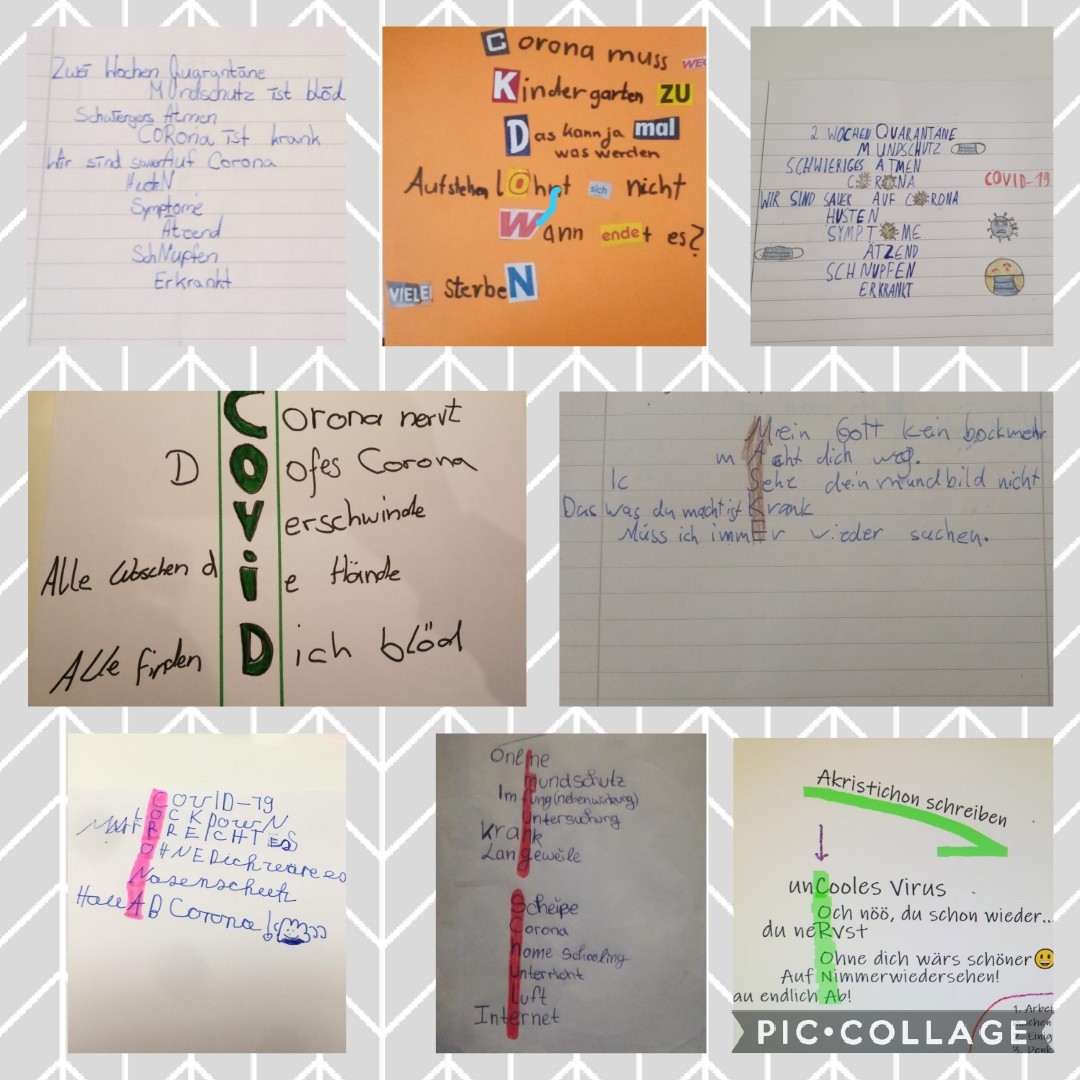 Zwei Wochen Quarantäne
Mundschutz ist blöd
Schwiergers Atmen
CORona ist krank
Wir sind sauer Auf Corona
HusteN
Symptome
Ätzend
SchNupfen
Erkrankt
Corona muss WEG
Kindergarten ZU
Das kann ja mal
was werden
Aufstehen lOhnt sich nicht
Wann endet es?
VIELE SterbeN
2 WOCHEN QUARANTÄNE
MUNDSCHUTZ
SCHWIERIGES ATMEN
CORONA
COVID-19
WIR SIND SAUER AUF CORONA
HUSTEN
SYMPTOME
ÄTZEND
SCHNUPFEN
ERKRANKT
Corona nervt
Doofes Corona
Verschwinde
Alle Waschen die Hände
Alle finden Dich blöd
Mein Gott kein bockmehr
mAcht dich weg.
Ic Sehe dein mundbild nicht
Das was du machtist Krank
Muss ich immEr wieder suchen.
COVID-19
LOCKDOWN
REICHT ES
OHNE Dich
Nasenschutz
Hau AB Corona!
Online
mundschutz
Impfung (nebenwirkung)
Untersuchung
krank
Langeweile
Scheiße
Corona
home schooling
Unterricht
Luft
Internet
Akristichon schreiben
unCooles Virus
Och nöö, du schon wieder...
du neRvst
Ohne dich wärs schöner
Auf Nimmerwiedersehen!
au endlich Ab!
1. Arbei
2. Einig
3. Denk
PIC•COLLAGE